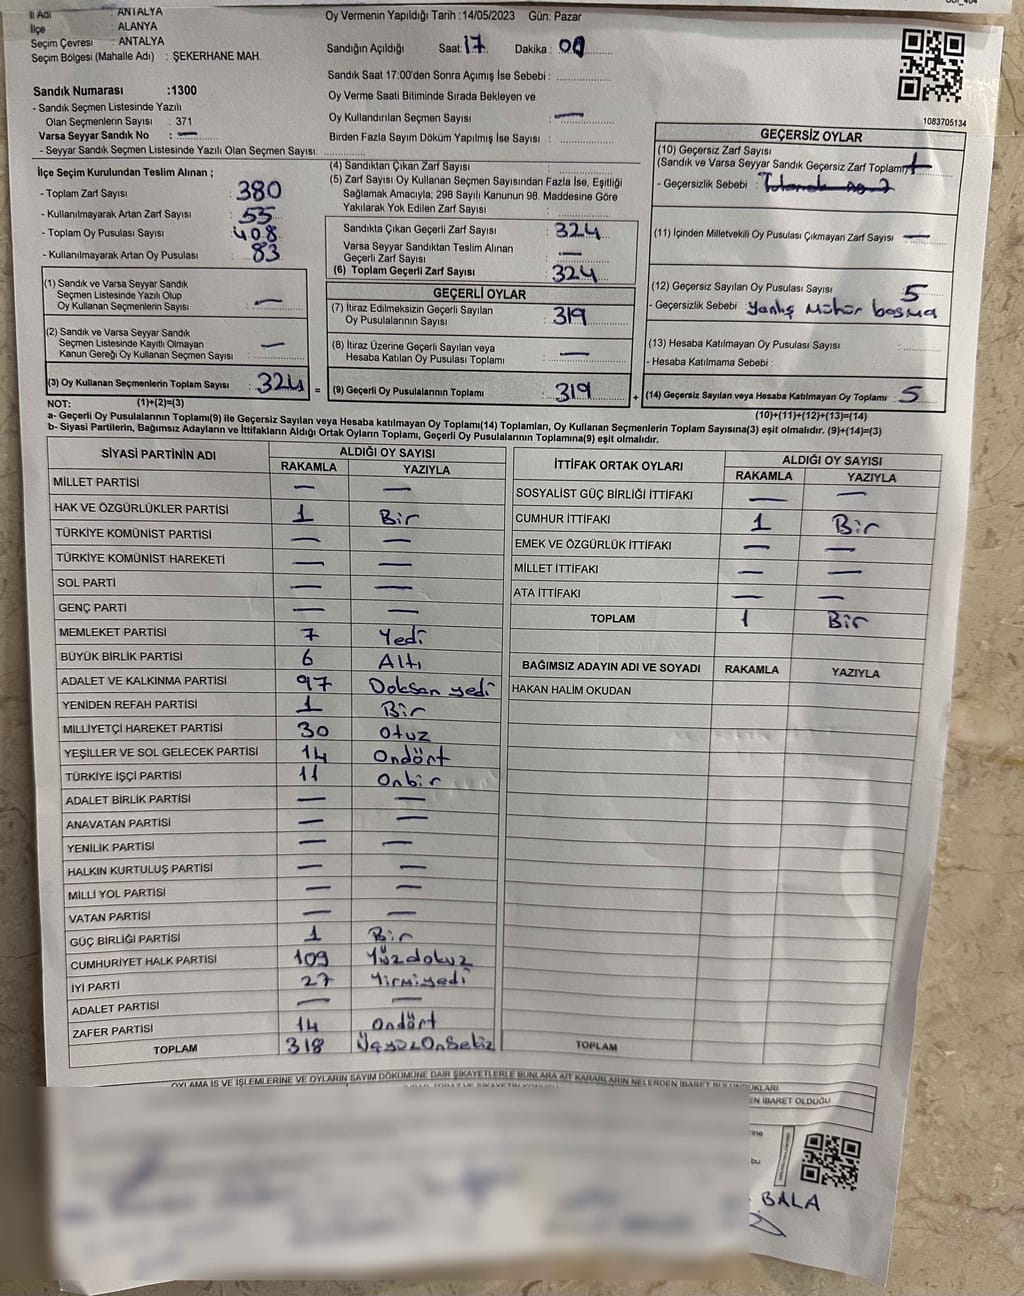 İl Adı : ANTALYA
İlçe : ALANYA
Seçim Çevresi : ANTALYA
Seçim Bölgesi (Mahalle Adı) : ŞEKERHANE MAH.
Oy Vermenin Yapıldığı Tarih :14/05/2023 Gün: Pazar
Sandığın Açıldığı Saat: 17 Dakika : 00
Sandık Saat 17:00'den Sonra Açımış İse Sebebi :
Oy Verme Saati Bitiminde Sırada Bekleyen ve
Oy Kullandırılan Seçmen Sayısı : —
Birden Fazla Sayım Döküm Yapılmış İSE Sayısı :
Sandık Numarası :1300
- Sandık Seçmen Listesinde Yazılı
Olan Seçmenlerin Sayısı : 371
Varsa Seyyar Sandık No : —
- Seyyar Sandık Seçmen Listesinde Yazılı Olan Seçmen Sayısı:
1083705134
İlçe Seçim Kurulundan Teslim Alınan ;
- Toplam Zarf Sayısı : 380
- Kullanılmayarak Artan Zarf Sayısı : 55
- Toplam Oy Pusulası Sayısı : 408
- Kullanılmayarak Artan Oy Pusulası : 83
(1) Sandık ve Varsa Seyyar Sandık
Seçmen Listesinde Yazılı Olup
Oy Kullanan Seçmenlerin Sayısı : —
(2) Sandık ve Varsa Seyyar Sandık
Seçmen Listesinde Kayıtlı Olmayan
Kanun Gereği Oy Kullanan Seçmen Sayısı : —
(3) Oy Kullanan Seçmenlerin Toplam Sayısı : 324
(4) Sandıktan Çıkan Zarf Sayısı :
(5) Zarf Sayısı Oy Kullanan Seçmen Sayısından Fazla İse, Eşitliği
Sağlamak Amacıyla; 298 Sayılı Kanunun 98. Maddesine Göre
Yakılarak Yok Edilen Zarf Sayısı :
Sandıkta Çıkan Geçerli Zarf Sayısı : 324
Varsa Seyyar Sandıktan Teslim Alınan
Geçerli Zarf Sayısı : —
(6) Toplam Geçerli Zarf Sayısı : 324
GEÇERLİ OYLAR
(7) İtiraz Edilmeksizin Geçerli Sayılan
Oy Pusulalarının Sayısı : 319
(8) İtiraz Üzerine Geçerli Sayılan veya
Hesaba Katılan Oy Pusulası Toplamı : —
= (9) Geçerli Oy Pusulalarının Toplamı : 319
GEÇERSİZ OYLAR
(10) Geçersiz Zarf Sayısı
(Sandık ve Varsa Seyyar Sandık Geçersiz Zarf Toplamı)
- Geçersizlik Sebebi :
(11) İçinden Milletvekili Oy Pusulası Çıkmayan Zarf Sayısı —
(12) Geçersiz Sayılan Oy Pusulası Sayısı : 5
- Geçersizlik Sebebi : Yanlış Mühür basma
(13) Hesaba Katılmayan Oy Pusulası Sayısı :
- Hesaba Katılmama Sebebi :
+ (14) Geçersiz Sayılan veya Hesaba Katılmayan Oy Toplamı : 5
NOT: (1)+(2)=(3) (10)+(11)+(12)+(13)=(14)
a- Geçerli Oy Pusulalarının Toplamı(9) ile Geçersiz Sayılan veya Hesaba katılmayan Oy Toplamı(14) Toplamları, Oy Kullanan Seçmenlerin Toplam Sayısına(3) eşit olmalıdır. (9)+(14)=(3)
b- Siyasi Partilerin, Bağımsız Adayların ve İttifakların Aldığı Ortak Oyların Toplamı, Geçerli Oy Pusulalarının Toplamına(9) eşit olmalıdır.
SİYASİ PARTİNİN ADI ALDIĞI OY SAYISI
RAKAMLA YAZIYLA
MİLLET PARTİSİ — —
HAK VE ÖZGÜRLÜKLER PARTİSİ 1 Bir
TÜRKİYE KOMÜNİST PARTİSİ — —
TÜRKİYE KOMÜNİST HAREKETİ — —
SOL PARTİ — —
GENÇ PARTİ — —
MEMLEKET PARTİSİ 7 Yedi
BÜYÜK BİRLİK PARTİSİ 6 Altı
ADALET VE KALKINMA PARTİSİ 97 Doksan yedi
YENİDEN REFAH PARTİSİ 1 Bir
MİLLİYETÇİ HAREKET PARTİSİ 30 Otuz
YEŞİLLER VE SOL GELECEK PARTİSİ 14 Ondört
TÜRKİYE İŞÇİ PARTİSİ 11 Onbir
ADALET BİRLİK PARTİSİ — —
ANAVATAN PARTİSİ — —
YENİLİK PARTİSİ — —
HALKIN KURTULUŞ PARTİSİ — —
MİLLİ YOL PARTİSİ — —
VATAN PARTİSİ — —
GÜÇ BİRLİĞİ PARTİSİ 1 Bir
CUMHURİYET HALK PARTİSİ 109 Yüzdokuz
İYİ PARTİ 27 Yirmiyedi
ADALET PARTİSİ — —
ZAFER PARTİSİ 14 Ondört
TOPLAM 318 ÜçyüzOnSekiz
İTTİFAK ORTAK OYLARI ALDIĞI OY SAYISI
RAKAMLA YAZIYLA
SOSYALİST GÜÇ BİRLİĞİ İTTİFAKI — —
CUMHUR İTTİFAKI 1 Bir
EMEK VE ÖZGÜRLÜK İTTİFAKI — —
MİLLET İTTİFAKI — —
ATA İTTİFAKI — —
TOPLAM 1 Bir
BAĞIMSIZ ADAYIN ADI VE SOYADI RAKAMLA YAZIYLA
HAKAN HALİM OKUDAN
TOPLAM
OYLAMA İŞ VE İŞLEMLERİNE VE OYLARIN SAYIM DÖKÜMÜNE DAİR ŞİKAYETLERLE BUNLARA AİT KARARLARIN NELERDEN İBARET BULUNDUKLARI
EN İBARET OLDUĞU
bu
BALA